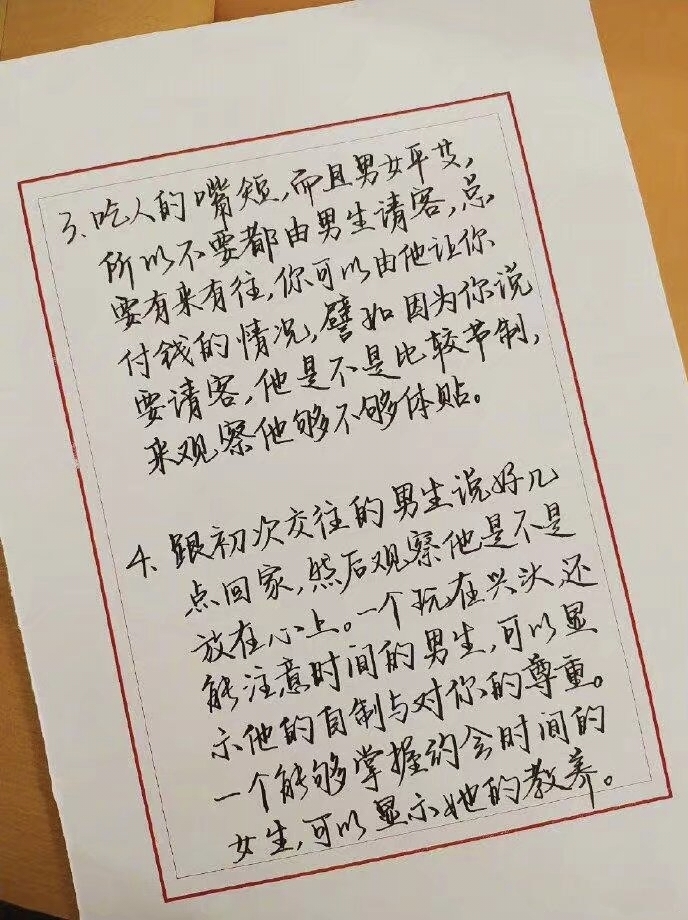 3、吃人的嘴短,而且男女平等,
所以不要都由男生请客,总
要有来有往,你可以由他让你
付钱的情况,譬如因为你说
要请客,他是不是比较节制,
来观察他够不够体贴。
4、跟初次交往的男生说好几
点回家,然后观察他是不是
放在心上。一个玩在兴头,还
能注意时间的男生,可以显
示他的自制与对你的尊重。
一个能够掌握约会时间的
女生,可以显示她的教养。